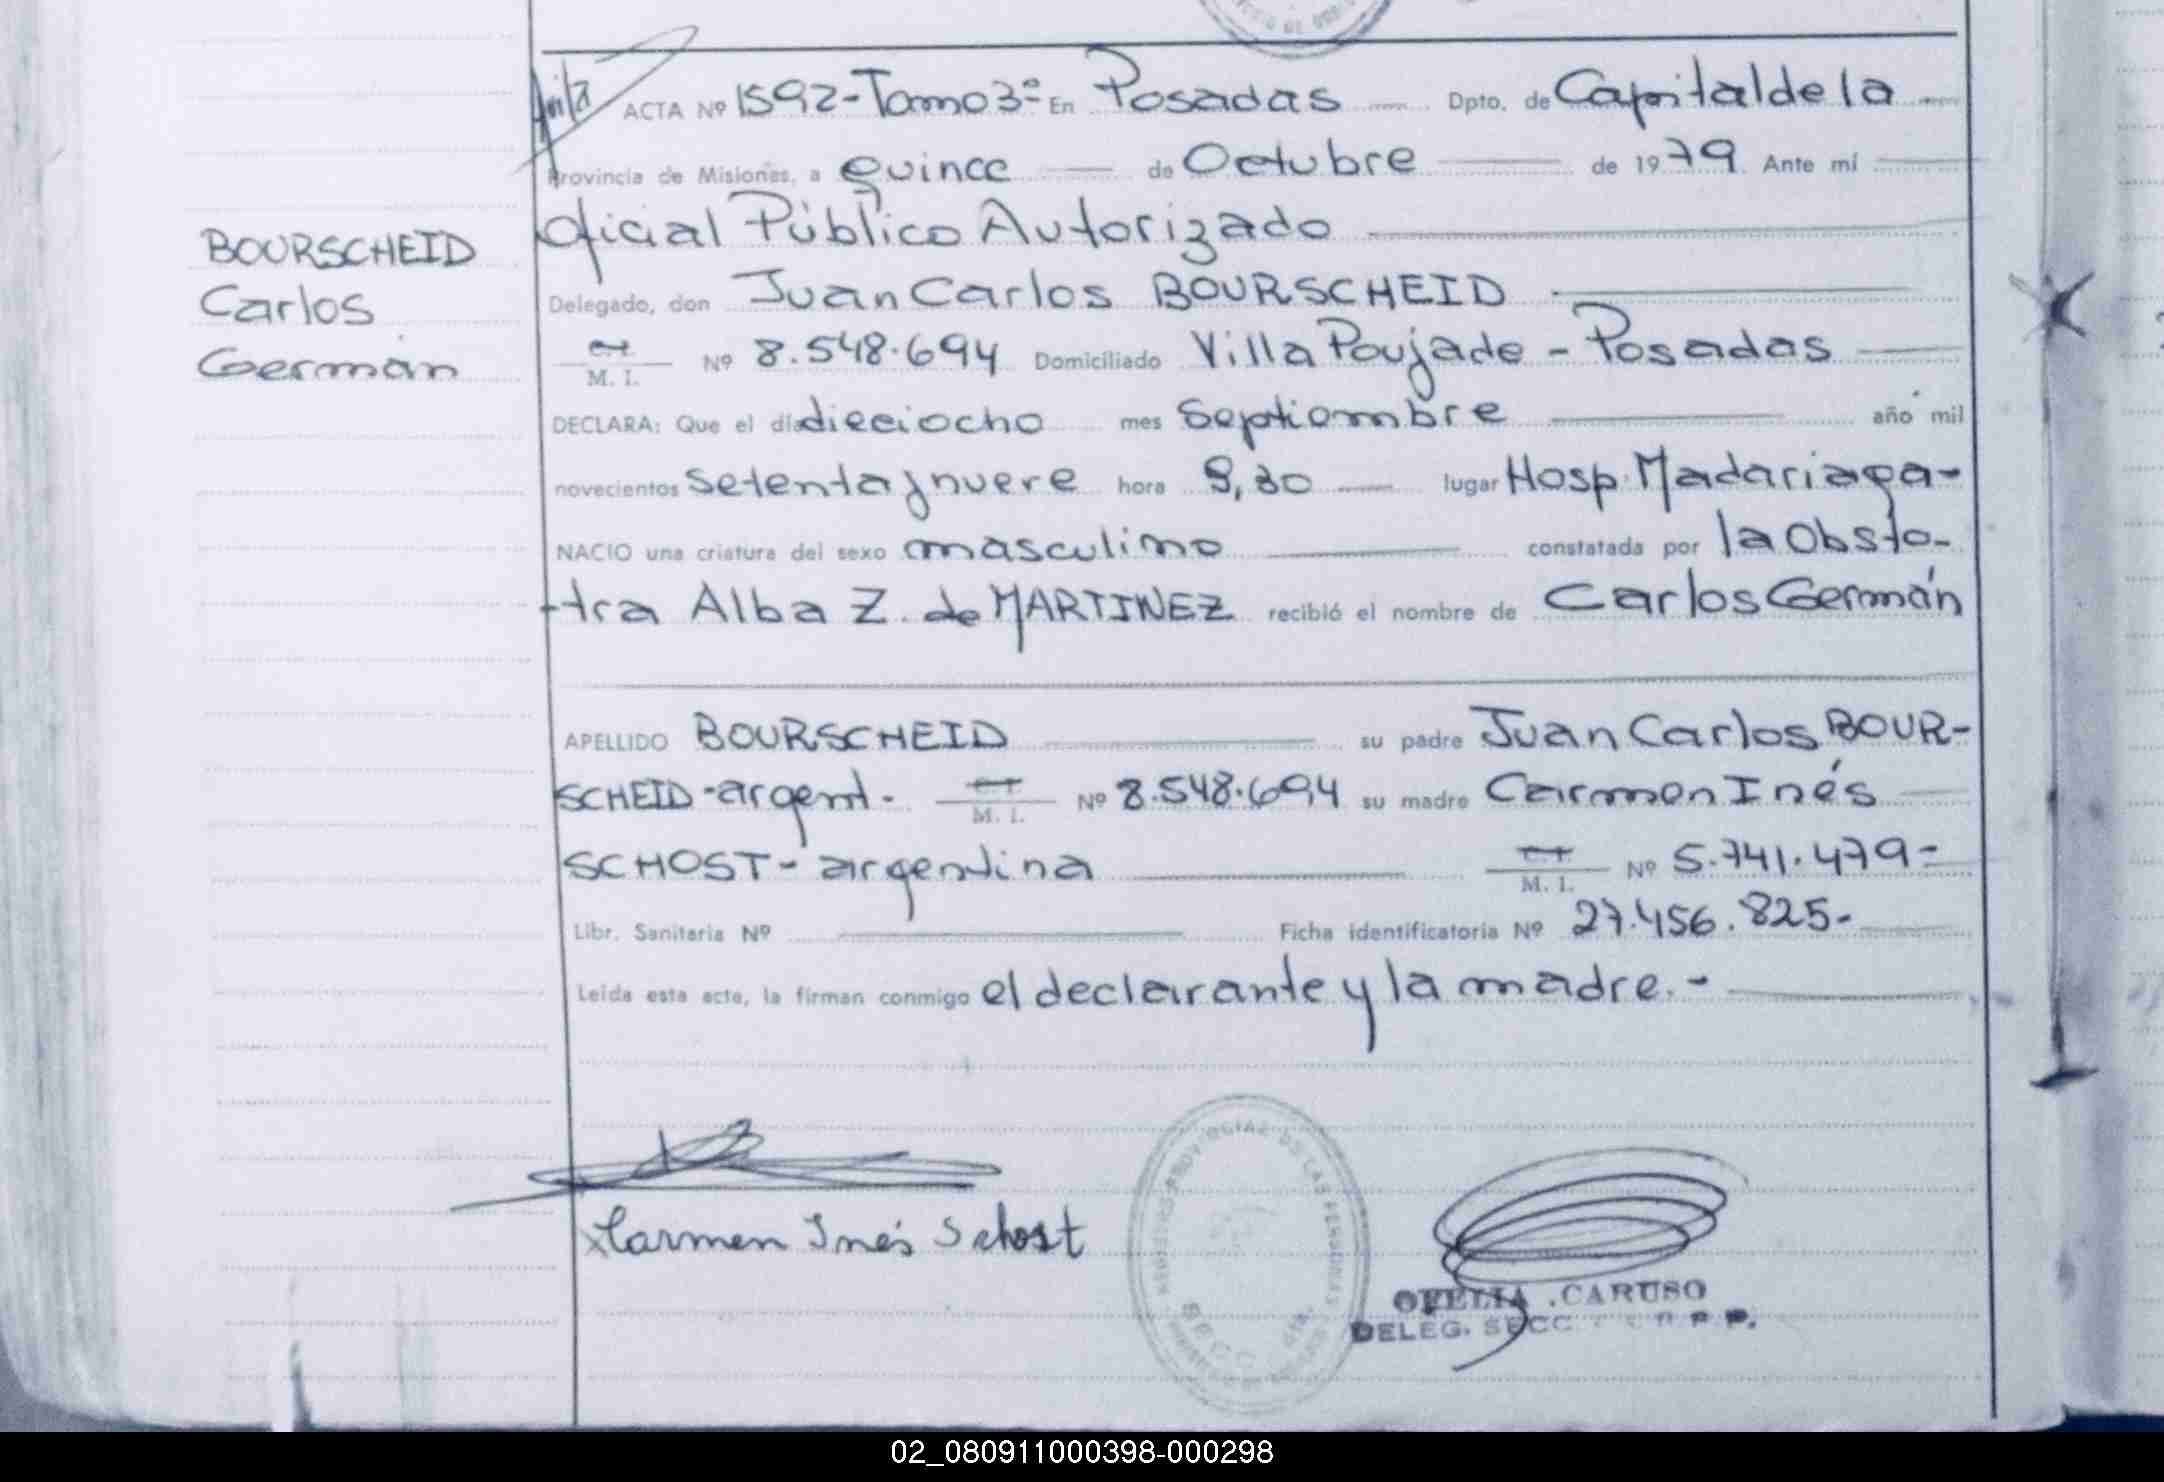 ACTA Nº 1592-Tomo 3º- En Posadas Dpto. de Capital de la
Provincia de Misiones, a quince de Octubre de 1979. Ante mí
Oficial Público Autorizado
BOURSCHEID
Carlos
Germán
Delegado, don Juan Carlos BOURSCHEID
M. I. Nº 8.548.694 Domiciliado Villa Poujade - Posadas
DECLARA: Que el día dieciocho mes Septiembre año mil
novecientos setenta y nueve hora lugar Hosp. Madariaga-
NACIO una criatura del sexo masculino constatada por la Obste-
tra Alba Z. de MARTINEZ recibió el nombre de Carlos Germán
APELLIDO BOURSCHEID su padre Juan Carlos BOUR-
SCHEID-argent. M. I. Nº 8.548.694 su madre Carmen Inés
SCHOST- argentina M. I. Nº 5.741.479-
Libr. Sanitaria Nº Ficha identificatoria Nº 27.456.825-
Leída esta acta, la firman conmigo el declarante y la madre.-
Carmen Inés Schost
OFELIA . CARUSO
DELEG. SECC
02_080911000398-000298